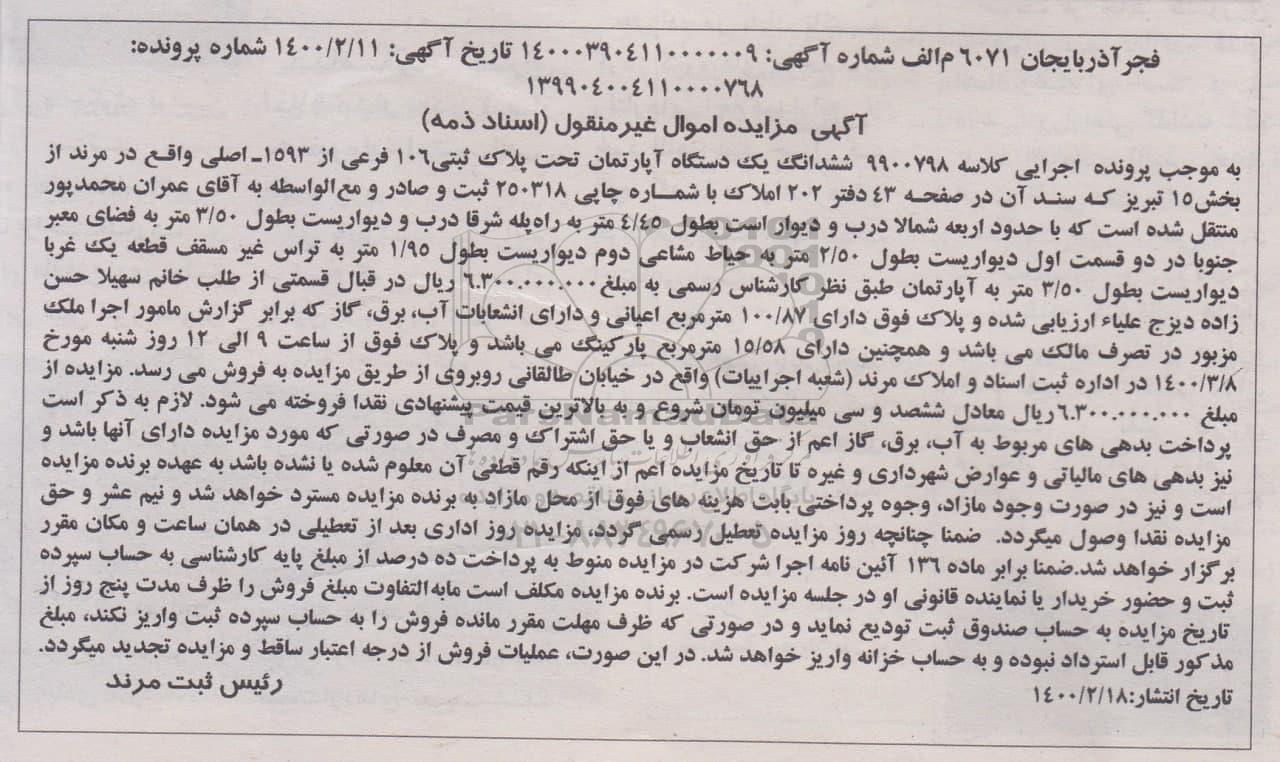 فجر آذربایجان ۶۰۷۱ م الف شماره آگهی: ۱۴۰۰۰۳۹۰۴۱۱۰۰۰۰۰۰۹ تاریخ آگهی: ۱۴۰۰/۲/۱۱ شماره پرونده:
۱۳۹۹۰۴۰۰۴۱۱۰۰۰۰۷۶۸
آگهی مزایده اموال غیرمنقول (اسناد ذمه)
به موجب پرونده اجرایی کلاسه ۹۹۰۰۷۹۸ ششدانگ یک دستگاه آپارتمان تحت پلاک ثبتی ۱۰۶ فرعی از ۱۵۹۳ـ اصلی واقع در مرند از
بخش ۱۵ تبریز که سند آن در صفحه ۴۳ دفتر ۲۰۲ املاک با شماره چاپی ۲۵۰۳۱۸ ثبت و صادر و مع‌الواسطه به آقای عمران محمدپور
منتقل شده است که با حدود اربعه شمالا درب و دیوار است بطول ۴/۴۵ متر به راه‌پله شرقا درب و دیواریست بطول ۳/۵۰ متر به فضای معبر
جنوبا در دو قسمت اول دیواریست بطول ۲/۵۰ متر به حیاط مشاعی دوم دیواریست بطول ۱/۹۵ متر به تراس غیر مسقف قطعه یک غربا
دیواریست بطول ۳/۵۰ متر به آپارتمان طبق نظر کارشناس رسمی به مبلغ ۶.۳۰۰.۰۰۰.۰۰۰ ریال در قبال قسمتی از طلب خانم سهیلا حسن
زاده دیزج علیاء ارزیابی شده و پلاک فوق دارای ۱۰۰/۸۷ مترمربع اعیانی و دارای انشعابات آب، برق، گاز که برابر گزارش مامور اجرا ملک
مزبور در تصرف مالک می باشد و همچنین دارای ۱۵/۵۸ مترمربع پارکینگ می باشد و پلاک فوق از ساعت ۹ الی ۱۲ روز شنبه مورخ
۱۴۰۰/۳/۸ در اداره ثبت اسناد و املاک مرند (شعبه اجراییات) واقع در خیابان طالقانی روبروی از طریق مزایده به فروش می رسد. مزایده از
مبلغ ۶.۳۰۰.۰۰۰.۰۰۰ ریال معادل ششصد و سی میلیون تومان شروع و به بالاترین قیمت پیشنهادی نقدا فروخته می شود. لازم به ذکر است
پرداخت بدهی های مربوط به آب، برق، گاز اعم از حق انشعاب و یا حق اشتراک و مصرف در صورتی که مورد مزایده دارای آنها باشد و
نیز بدهی های مالیاتی و عوارض شهرداری و غیره تا تاریخ مزایده اعم از اینکه رقم قطعی آن معلوم شده یا نشده باشد به عهده برنده مزایده
است و نیز در صورت وجود مازاد، وجوه پرداختی بابت هزینه های فوق از محل مازاد به برنده مزایده مسترد خواهد شد و نیم عشر و حق
مزایده نقدا وصول میگردد. ضمنا چنانچه روز مزایده تعطیل رسمی گردد، مزایده روز اداری بعد از تعطیلی در همان ساعت و مکان مقرر
برگزار خواهد شد.ضمنا برابر ماده ۱۳۶ آئین نامه اجرا شرکت در مزایده منوط به پرداخت ده درصد از مبلغ پایه کارشناسی به حساب سپرده
ثبت و حضور خریدار یا نماینده قانونی او در جلسه مزایده است. برنده مزایده مکلف است مابه‌التفاوت مبلغ فروش را ظرف مدت پنج روز از
تاریخ مزایده به حساب صندوق ثبت تودیع نماید و در صورتی که ظرف مهلت مقرر مانده فروش را به حساب سپرده ثبت واریز نکند، مبلغ
مذکور قابل استرداد نبوده و به حساب خزانه واریز خواهد شد. در این صورت، عملیات فروش از درجه اعتبار ساقط و مزایده تجدید میگردد.
تاریخ انتشار:۱۴۰۰/۲/۱۸
رئیس ثبت مرند
ParsNamadData